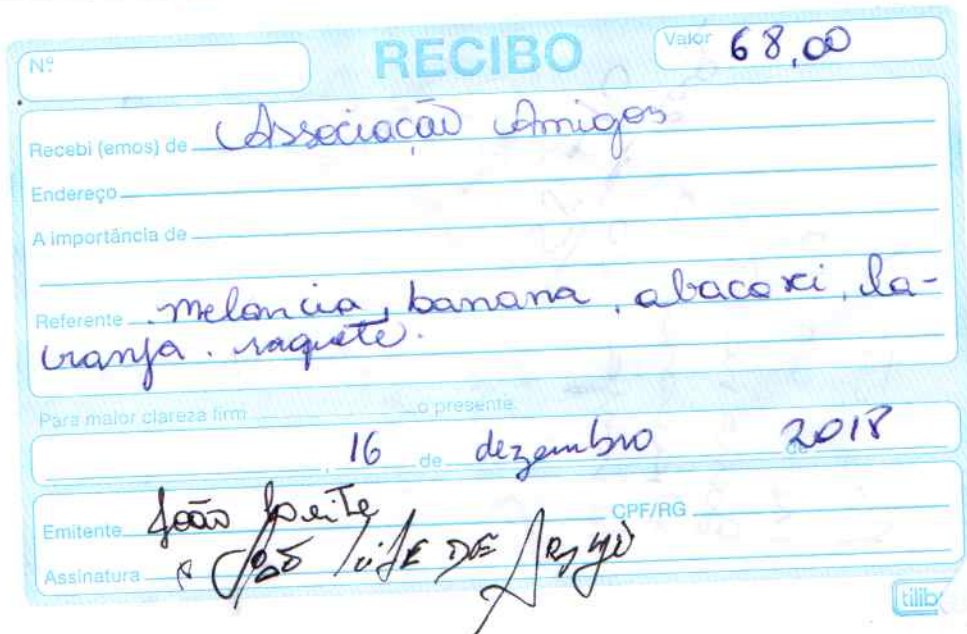 Nº
RECIBO
Valor 68,00
Recebi (emos) de Associação Amigos
Endereço
A importância de
Referente melancia, banana, abacaxi, la-
ranja. raquete.
Para maior clareza firm o presente.
16 de dezembro de 2018
Emitente João Leite CPF/RG
Assinatura João Leite DE Araujo
tilib